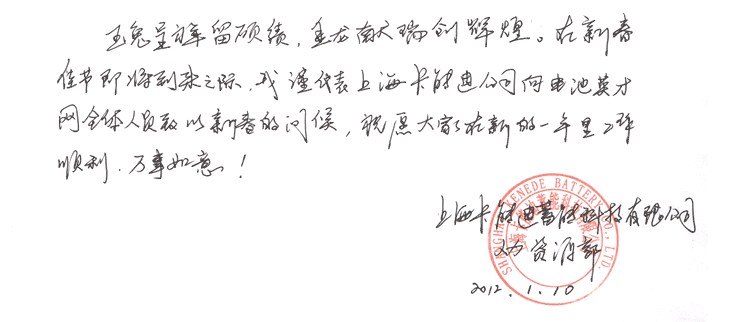 玉兔呈祥留硕绩，金龙南天瑞创辉煌。在新春
佳节即将到来之际，我谨代表上海卡能迪公司向电池英才
网全体人员致以新春的问候，祝愿大家在新的一年里工作
顺利，万事如意！
上海卡能迪蓄能科技有限公司
人力资源部
2012.1.10
SHANGHAI KENEDE BATTERY CO., LTD.